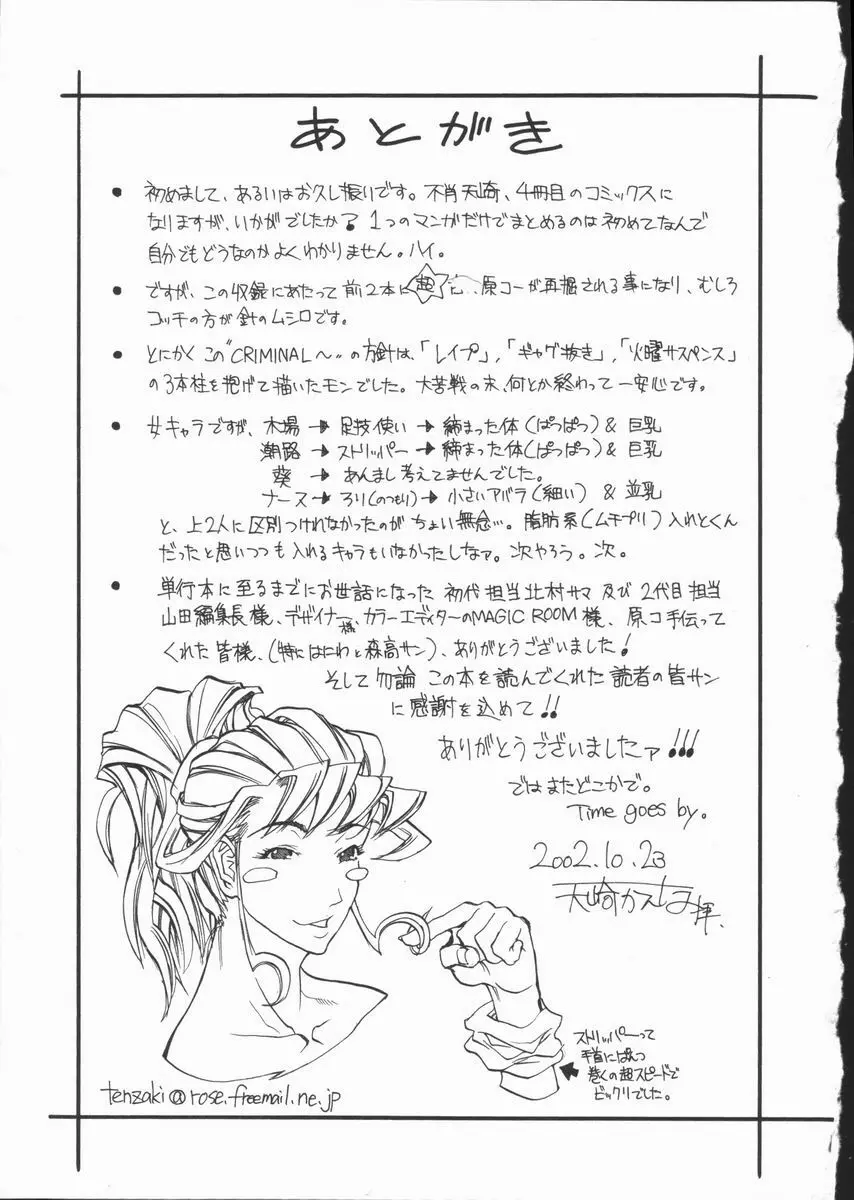 あとがき
• 初めまして、あるいはお久し振りです。不肖天崎、4冊目のコミックスに
なりますが、いかがでしたか? 1つのマンガだけでまとめるのは初めてなんで
自分でもどうなのかよくわかりません。ハイ。
• ですが、この収録にあたって前2本に超 、原コーが再掘される事になり、むしろ
コッチの方が針のムシロです。
• とにかくこの"CRIMINAL〜"の方針は、「レイプ」,「ギャグ抜き」,「火曜サスペンス」
の3本柱を掲げて描いたモンでした。大苦戦の末、何とか終わって一安心です。
• 女キャラですが、木場→足技使い→締まった体(ぱっぱつ)&巨乳
潮路→ストリッパー→締まった体(ぱっぱつ)&巨乳
葵→あんまし考えてませんでした。
ナース→ろり(のつもり)→小さいアバラ(細い)&並乳
と、上2人に区別つけれなかったのがちょい無念…。脂肪系(ムチプリ)入れとくん
だったと思いつつも入れるキャラもいなかったしなァ。次やろう。次。
• 単行本に至るまでにお世話になった初代担当北村サマ及び2代目担当
山田編集長様、デザイナー様、カラーエディターのMAGIC ROOM様、原コ手伝って
くれた皆様、(特にはにわと森高サン)、ありがとうございました!
そして勿論この本を読んでくれた読者の皆サン
に感謝を込めて!!
ありがとうございましたァ!!!
ではまたどこかで。
Time goes by.
2002.10.23
天崎かんな拝、
ストリッパーって
手首にぱんつ
巻くの超スピードで
ビックリでした。
tenzaki@rose.freemail.ne.jp